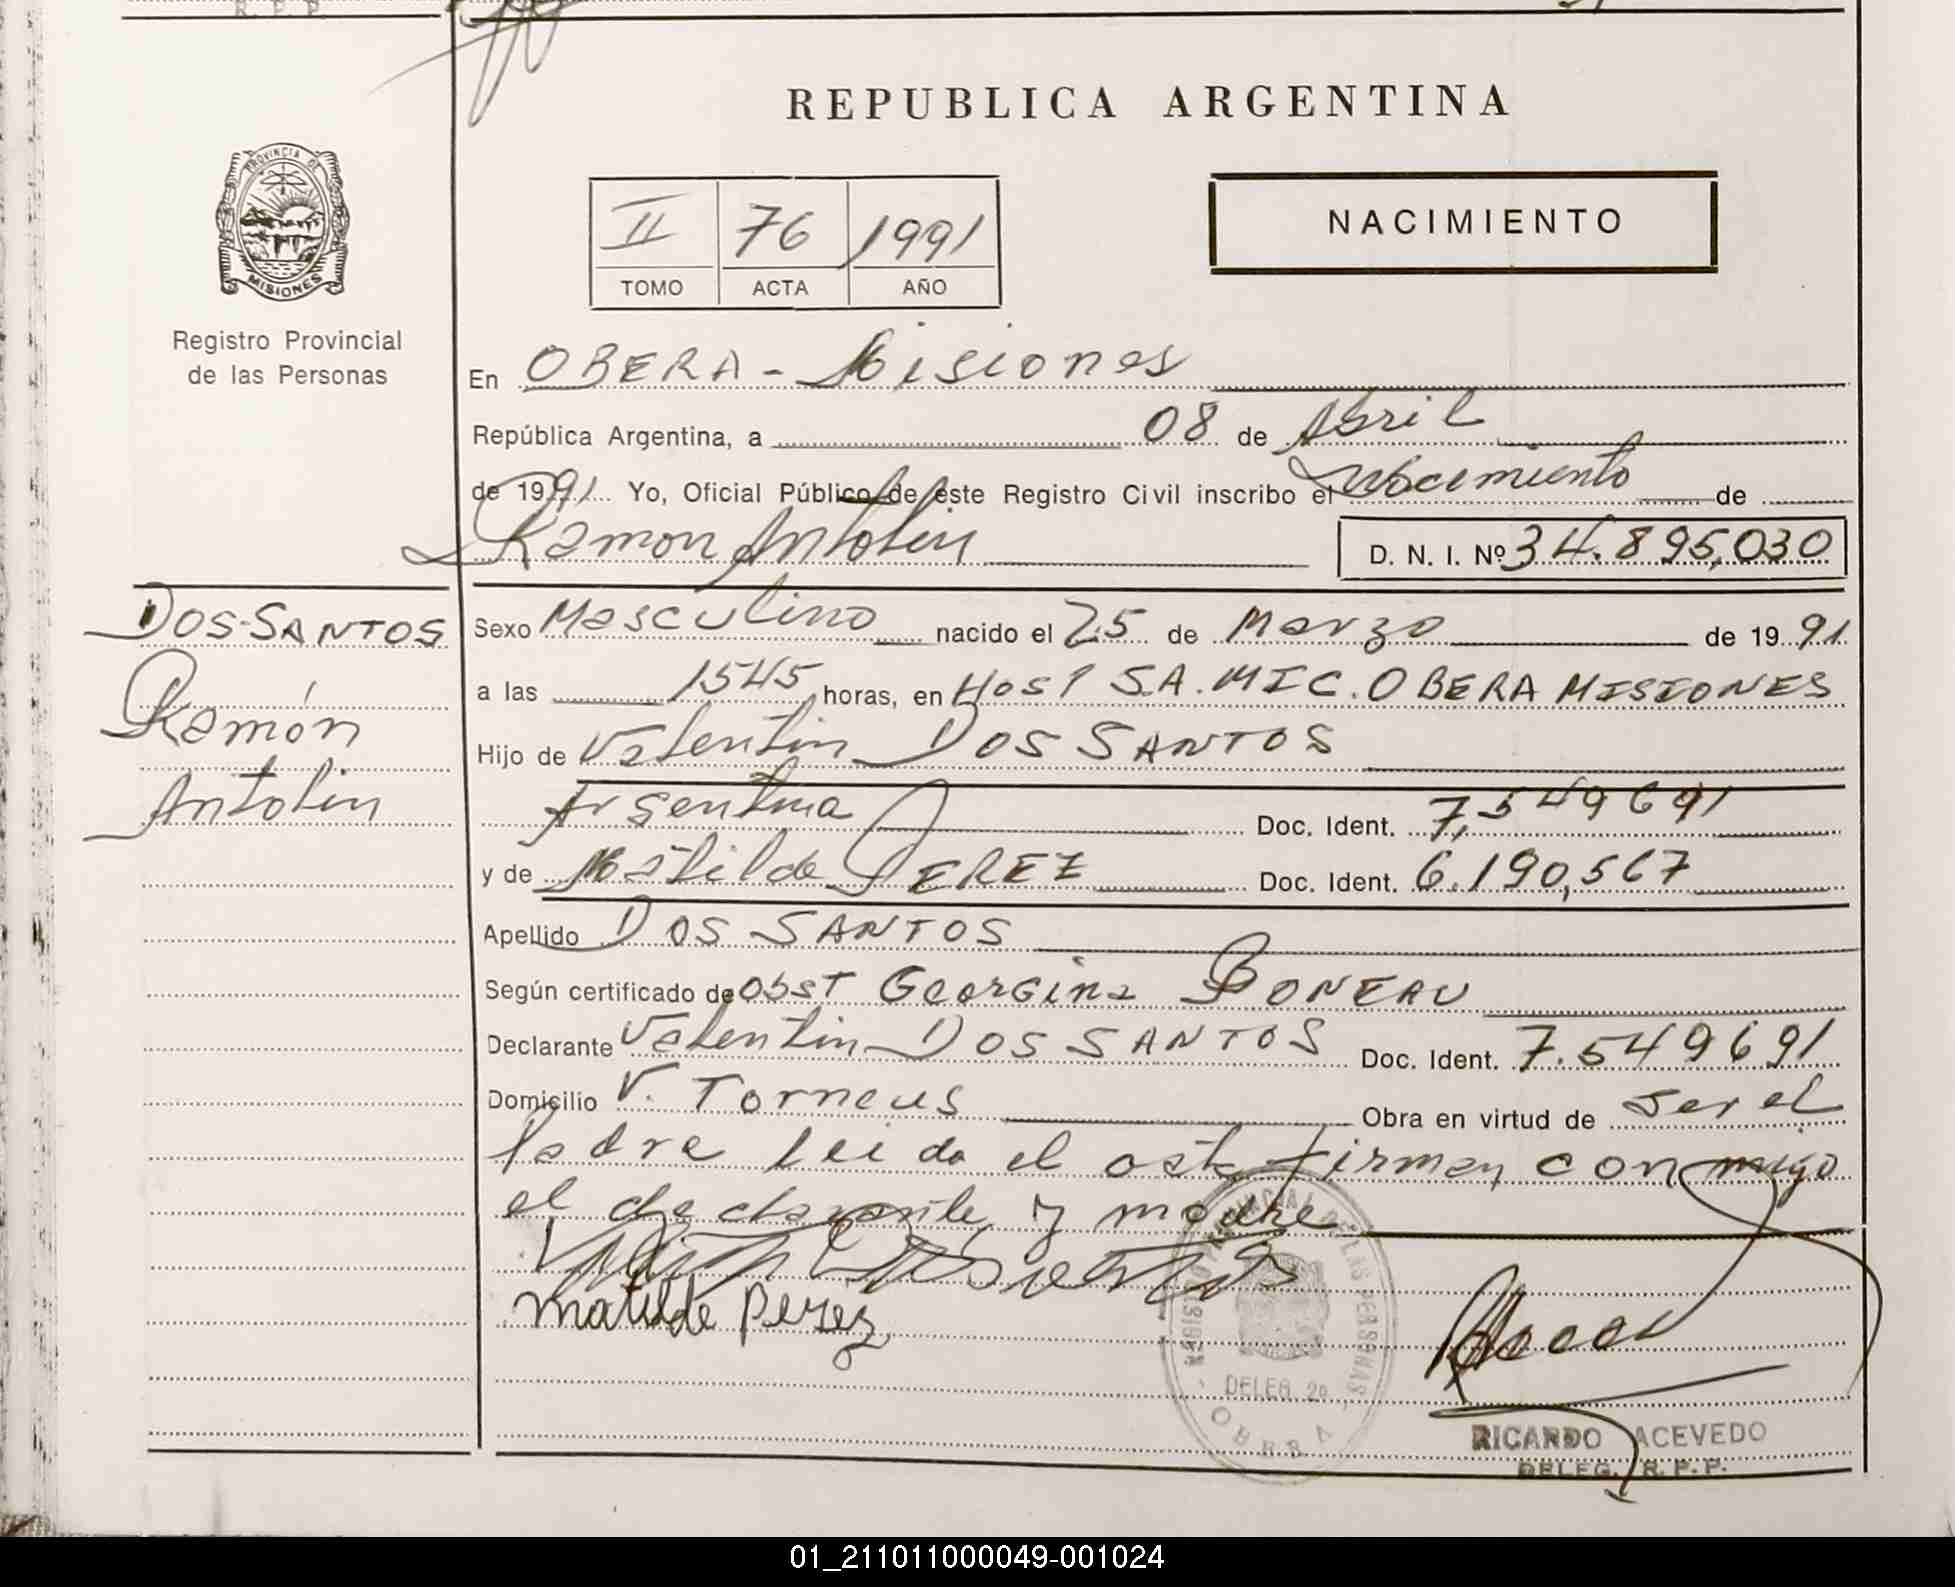 R. P. P.
REPUBLICA ARGENTINA
PROVINCIA DE
MISIONES
Registro Provincial
de las Personas
II 76 1991
TOMO ACTA AÑO
NACIMIENTO
En OBERA - Misiones
República Argentina, a 08 de Abril
de 1991 Yo, Oficial Público de este Registro Civil inscribo el Nacimiento de
Ramon Antolin D. N. I. Nº 34.895,030
DOS-SANTOS
Ramón
Antolin
Sexo Masculino nacido el 25 de Marzo de 1991
a las 1545 horas, en Hosp S.A. MIC. OBERA MISIONES
Hijo de Valentin DOS SANTOS
Argentina Doc. Ident. 7,549691
y de Matilde PEREZ Doc. Ident. 6.190,567
Apellido DOS SANTOS
Según certificado de obst Georgina BONEAU
Declarante Valentin DOS SANTOS Doc. Ident. 7.549691
Domicilio V. Torneus Obra en virtud de ser el
Padre leida el acta firman conmigo
el declarante y madre
Matilde Perez
DELEG. 2a.
OBERA
RICARDO ACEVEDO
DELEG. R. P. P.
01_211011000049-001024